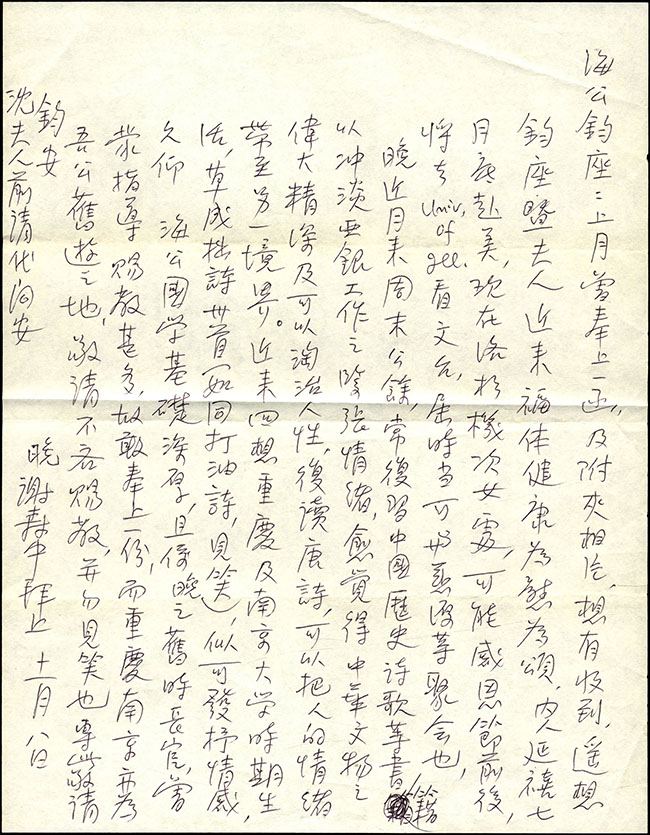 海公鈞座：上月曾奉上一函，及附夾相片，想有收到，遥想
鈞座暨夫人近来福体健康為慰為頌，内人延禧七
月底赴美，現在洛杉機次女處，可能感恩節前後，
将去 Univ. of 看文允，屆時当可与慈浚等聚会也，
晚近月来周末公餘，常復習中國歷史詩歌等書籍
以冲淡亚銀工作之緊張情緒，愈覚得中華文物之
偉大精深及可以淘冶人性，復读唐詩，可以把人的情緒
帶至另一境界。近来回想重慶及南京大学時期生
活，草成拙詩卅首一如同打油詩，見笑，似可發抒情感，
久仰 海公國学基礎深厚，且係晚之舊時長官，曾
蒙指導賜教甚多，故敢奉上一份，而重慶南京亦為
吾公舊遊之地，敬請不吝賜教，并勿見笑也專此敬請
鈞安
沈夫人前请代问安
晚謝拜上 十一月八日